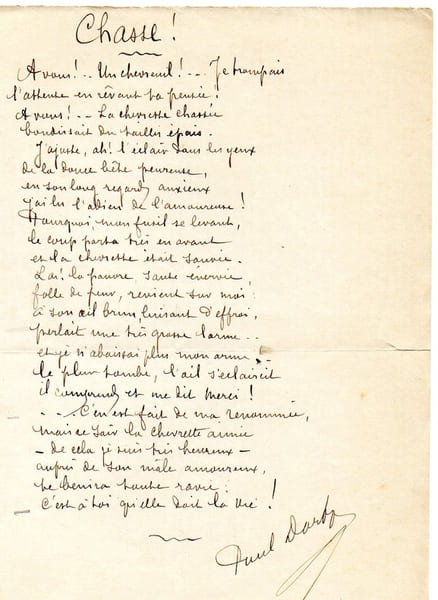 Chasse !
A vous ! .. Un chevreuil ! ... Je trompais
l'attente en rêvant ta pensée.
A vous ! .. La chevrette chassée
bondissait du taillis épais.
J'ajuste, ah ! l'éclair dans les yeux
de la douce bête peureuse,
en son long regard anxieux
j'ai lu l'adieu de l'amoureuse !
Pourquoi, mon fusil se levant,
le coup porta très en avant
et la chevrette était sauvée.
La ! la pauvre, toute énervée
folle de peur, revient sur moi ;
à son œil brun, luisant d'effroi,
perlait une très grosse larme ...
et je n'abaissai plus mon arme.
le plomb tombe, l'œil s'éclaircit
il comprend et me dit merci !
... C'en est fait de ma renommée,
mais ce soir la chevrette aimée
- de cela je suis très heureux -
auprès de son mâle amoureux,
te bénira toute ravie :
C'est à toi qu'elle doit la vie !
Paul